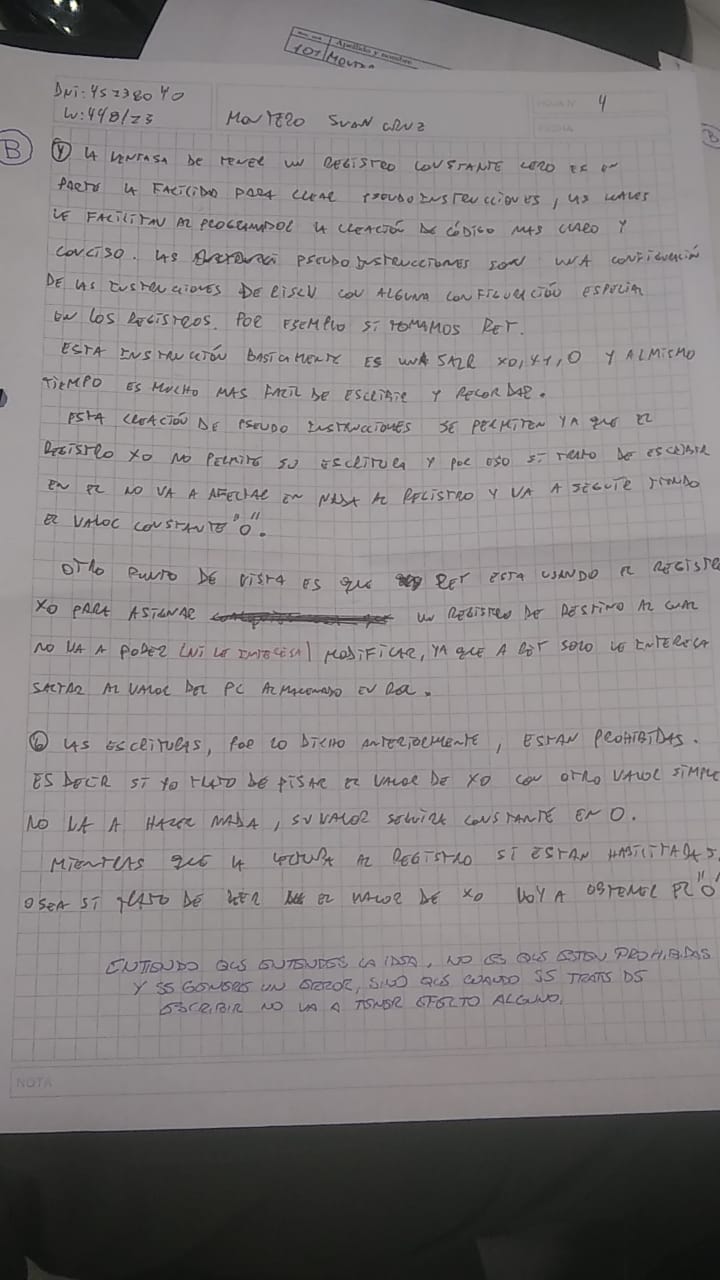 Nro. ord. Apellido y nombre
107
DNI: 45238040
LU: 448/23
MONTERO JUAN CRUZ
HOJA Nº 4
FECHA
B
B
a) LA VENTAJA DE TENER UN REGISTRO CONSTANTE CERO ES EN
PARTE LA FACILIDAD PARA CREAR PSEUDO INSTRUCCIONES, LAS CUALES
LE FACILITAN AL PROGRAMADOR LA CREACIÓN DE CÓDIGO MAS CLARO Y
CONCISO. LAS PSEUDO INSTRUCCIONES SON UNA CONFIGURACIÓN
DE LAS INSTRUCCIONES DE RISCV CON ALGUNA CONFIGURACIÓN ESPECIAL
EN LOS REGISTROS. POR EJEMPLO SI TOMAMOS RET.
ESTA INSTRUCCIÓN BASICAMENTE ES UNA JALR X0, X1, 0 Y AL MISMO
TIEMPO ES MUCHO MAS FACIL DE ESCRIBIR Y RECORDAR.
ESTA CREACIÓN DE PSEUDO INSTRUCCIONES SE PERMITEN YA QUE EL
REGISTRO X0 NO PERMITE SU ESCRITURA Y POR ESO SI TRATO DE ESCRIBIR
EN EL NO VA A AFECTAR EN NADA AL REGISTRO Y VA A SEGUIR TENIENDO
EL VALOR CONSTANTE "0".
OTRO PUNTO DE VISTA ES QUE RET ESTA USANDO EL REGISTRO
X0 PARA ASIGNAR UN REGISTRO DE DESTINO AL CUAL
NO VA A PODER (NI LE INTERESA) MODIFICAR, YA QUE A RET SOLO LE INTERESA
SALTAR AL VALOR DEL PC ALMACENADO EN RA.
b) LAS ESCRITURAS, POR LO DICHO ANTERIORMENTE, ESTAN PROHIBIDAS.
ES DECIR SI YO TRATO DE PISAR EL VALOR DE X0 CON OTRO VALOR SIMPLE
NO VA A HACER NADA, SU VALOR SEGUIRA CONSTANTE EN 0.
MIENTRAS QUE LA LECTURA AL REGISTRO SI ESTAN HABILITADAS,
OSEA SI TRATO DE LEER EL VALOR DE X0 VOY A OBTENER EL "0"
ENTIENDO QUE ENTENDES LA IDEA, NO ES QUE ESTEN PROHIBIDAS
Y SE GENERE UN ERROR, SINO QUE CUANDO SE TRATE DE
ESCRIBIR NO VA A TENER EFECTO ALGUNO.
NOTA